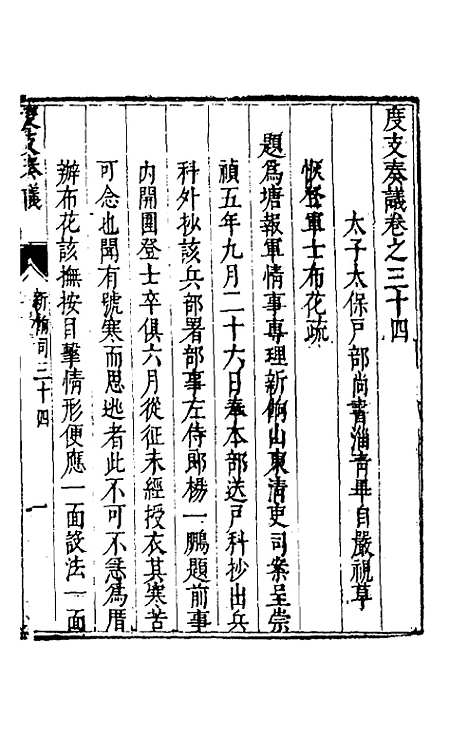 度支奏議卷之三十四
太子太保戶部尚書淄青畢自嚴視草
恢登軍士布花疏
題爲塘報軍情事專理新餉山東清吏司案呈崇
禎五年九月二十六日奉本部送戶科抄出兵
科外抄該兵部署部事左侍郎楊一鵬題前事
內開圍登士卒俱六月從征未經授衣其寒苦
可念也聞有號寒而思逃者此不可不急爲厝
辦布花該撫按目擊情形便應一面設法一面
度支奏議
新餉司三十四
一